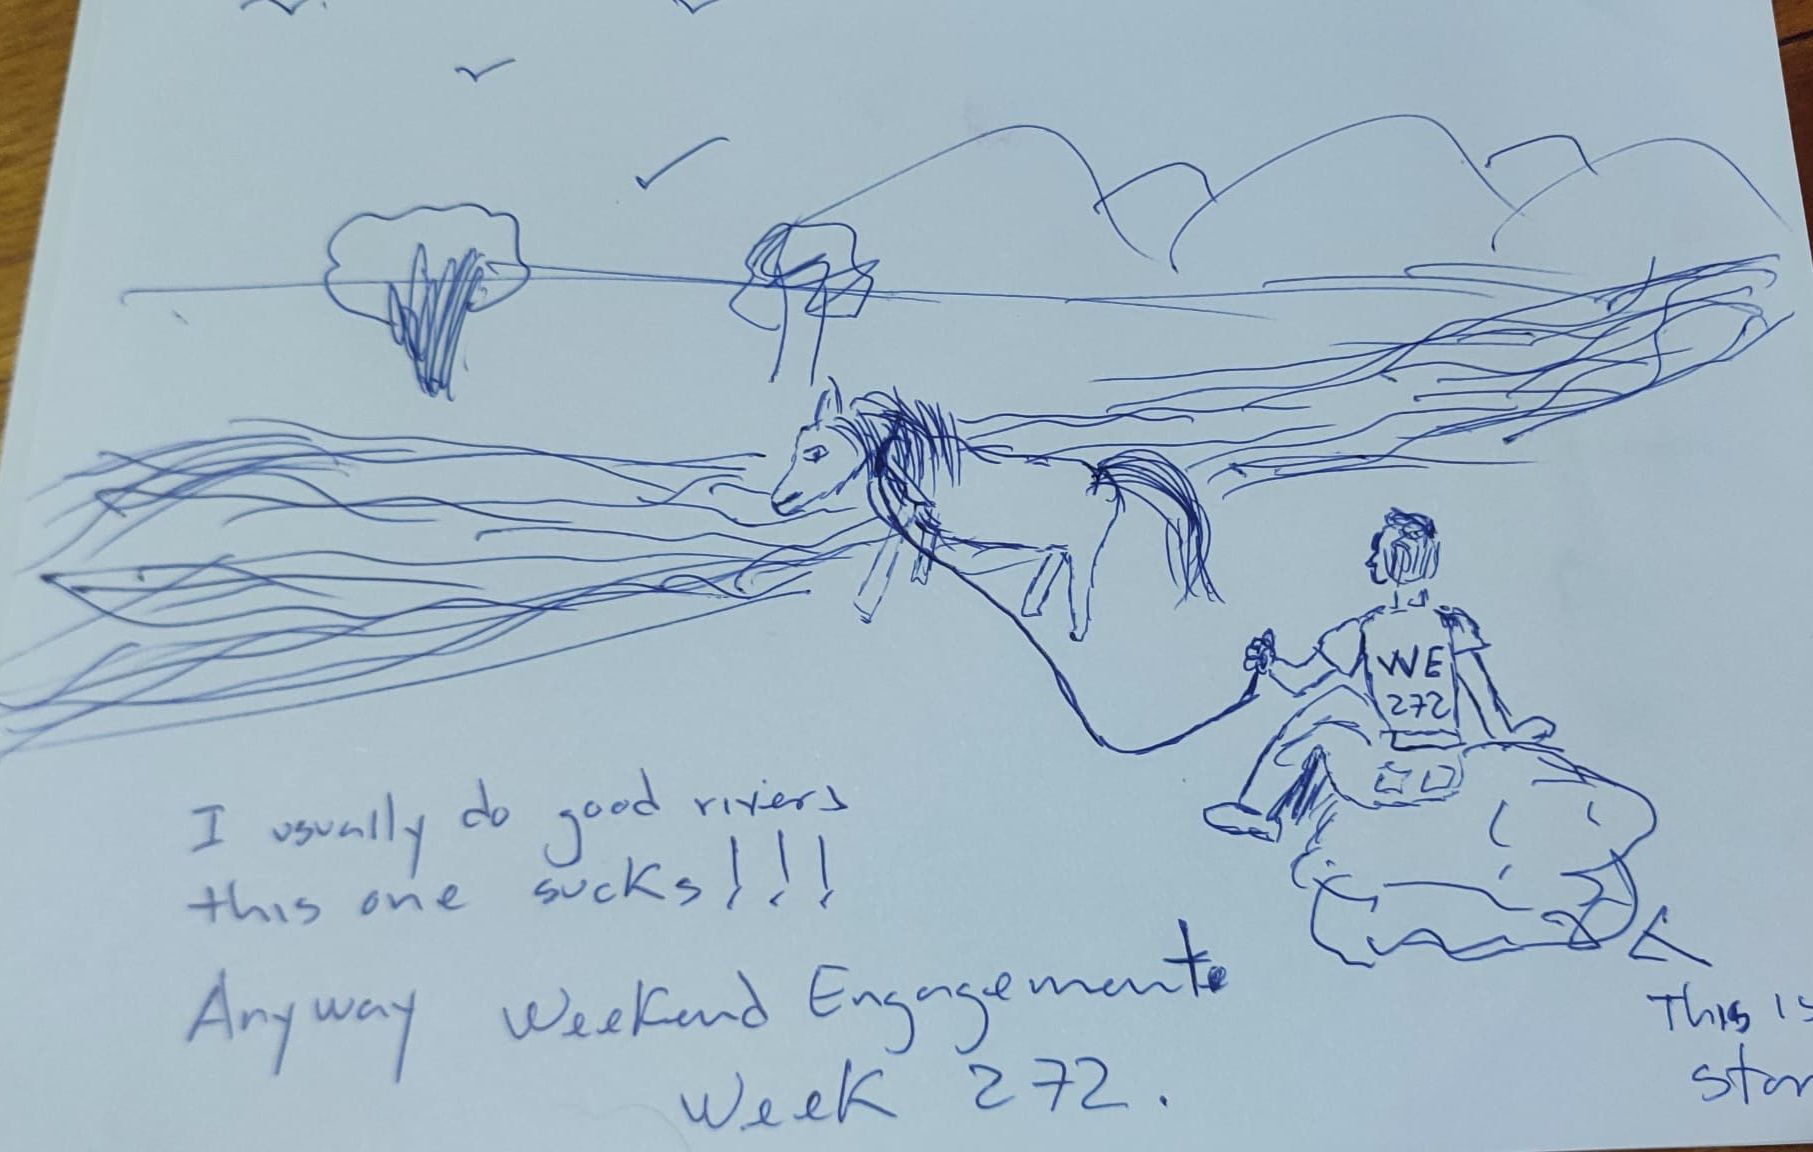 WE
272
I usually do good rivers
this one sucks!!!
Anyway Weekend Engagement.
Week 272.
This is